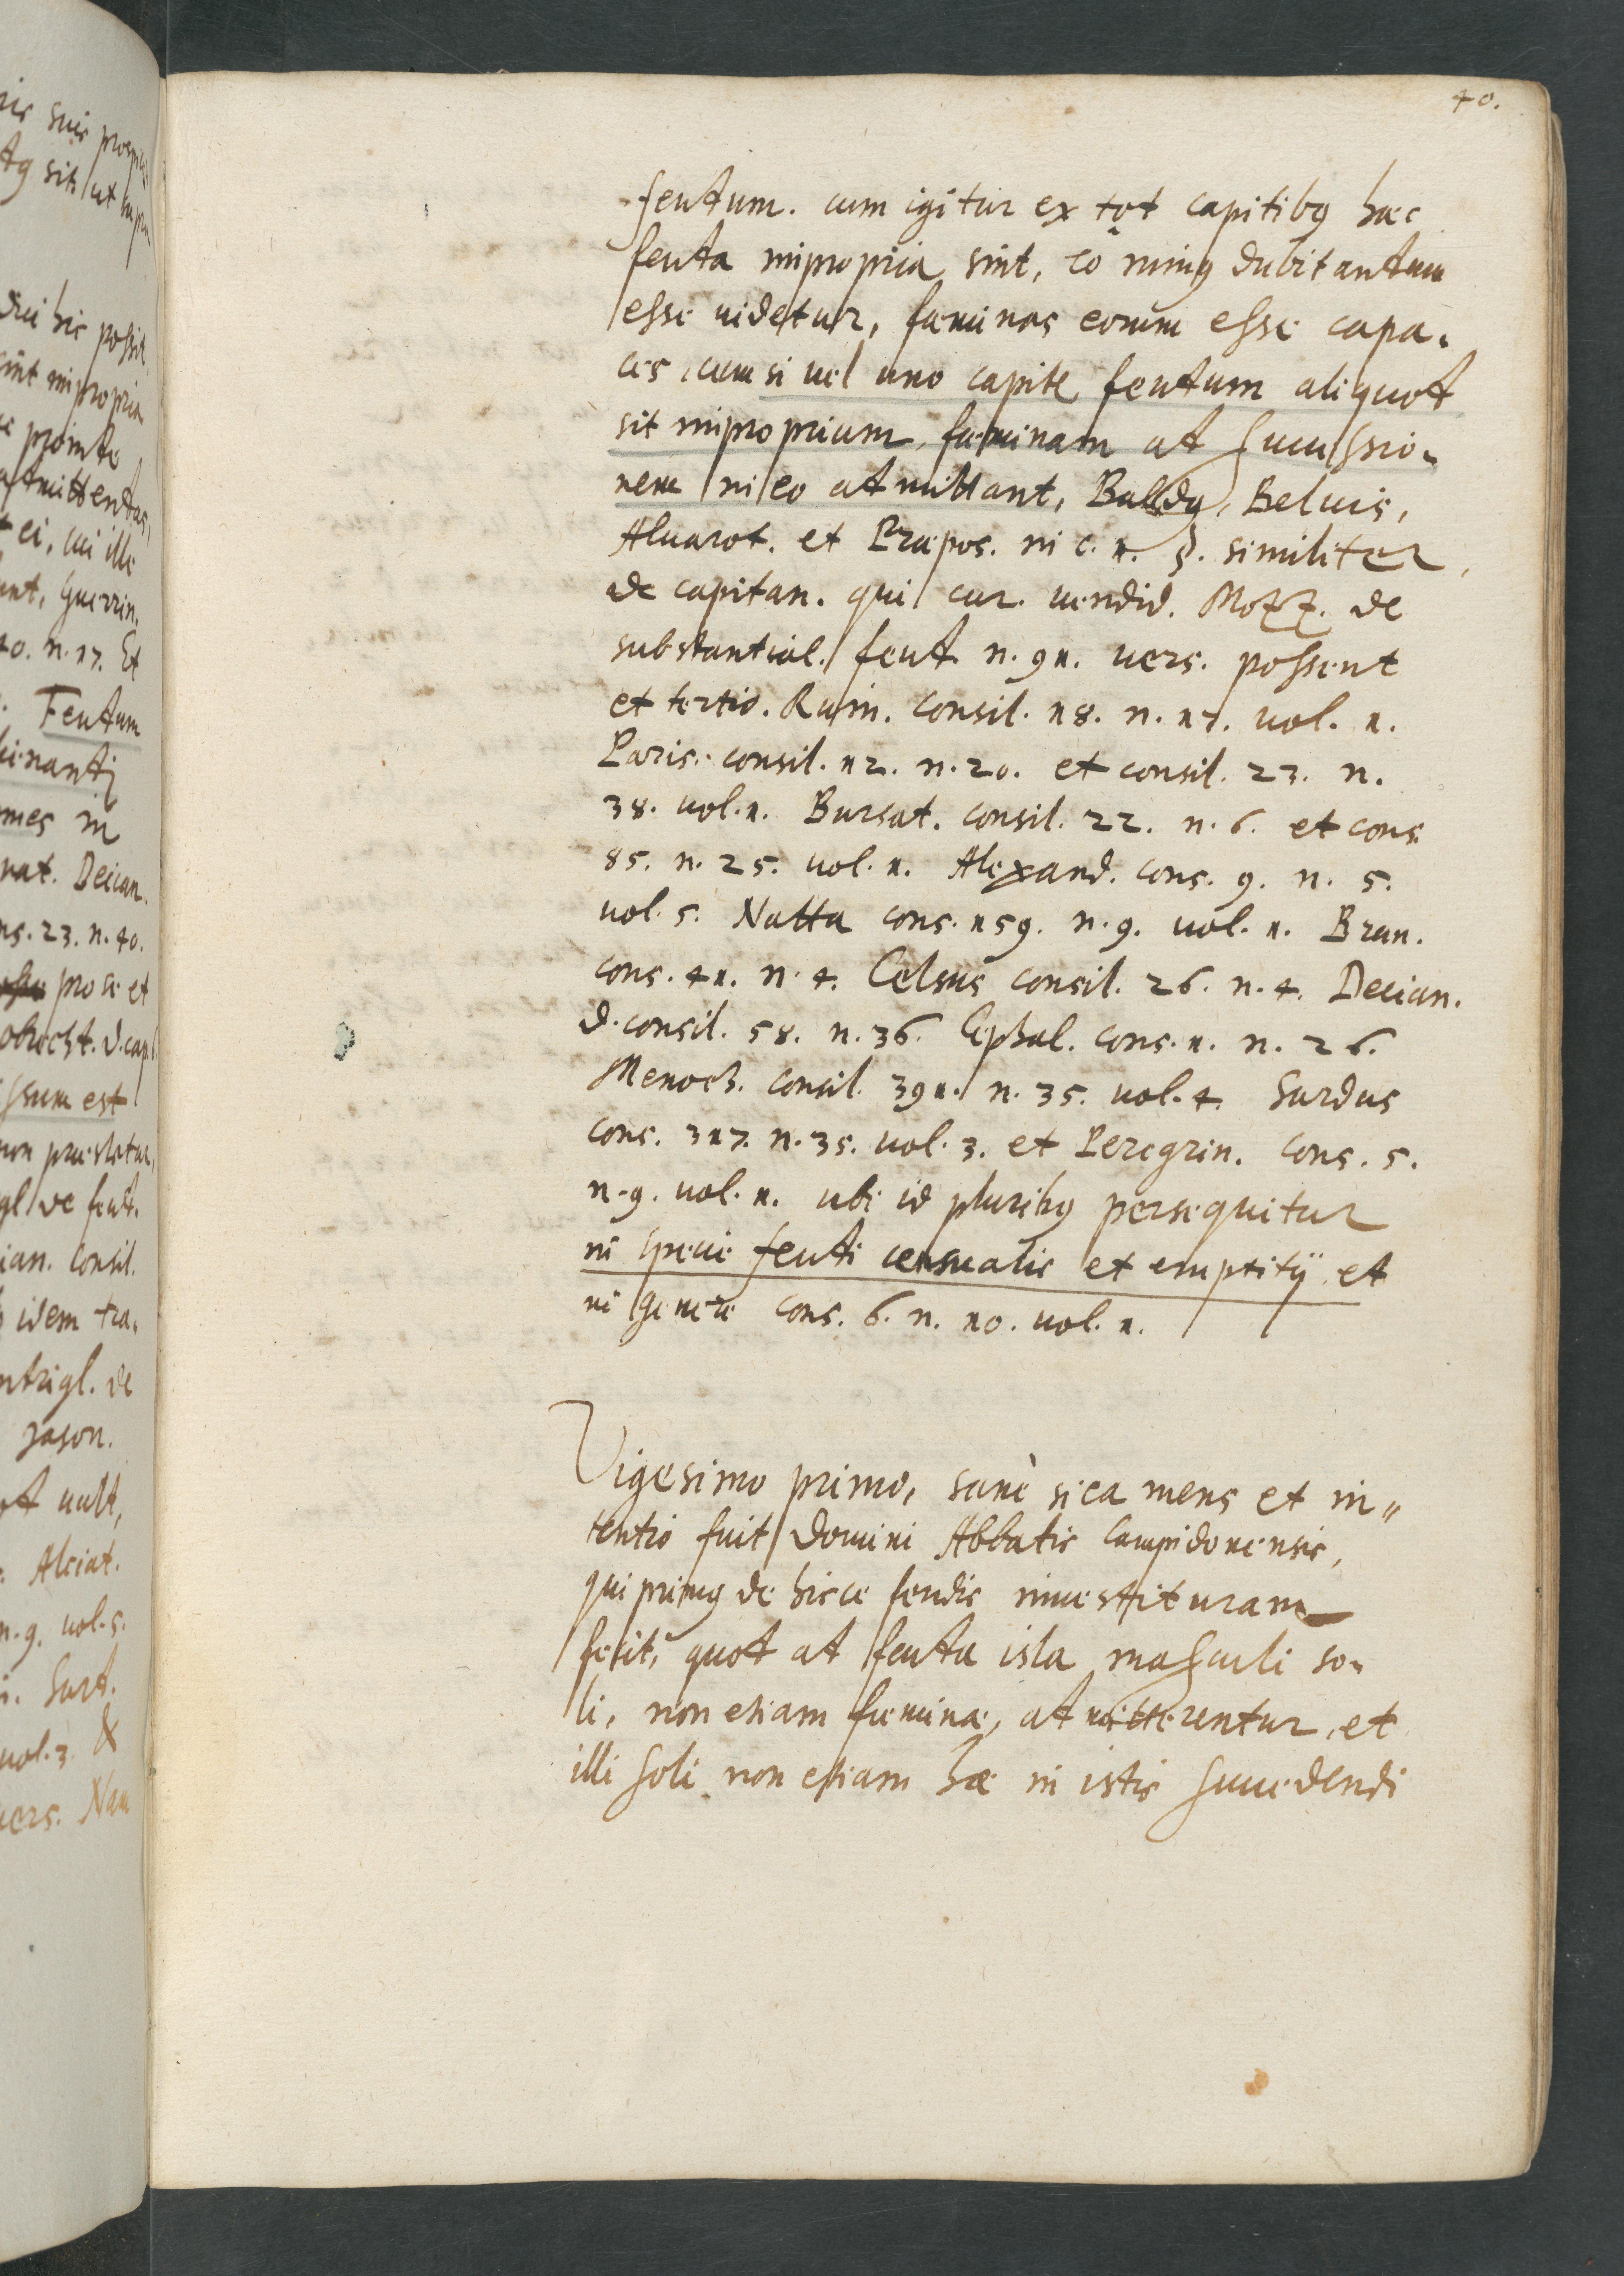 40.
feutum. cum igitur ex tot capitibus haec
feuta impropria sint, eo minus dubitantum
esse uidetur, faeminas eorum esse capa-
ces, cum si uel uno capite feutum aliquot
sit improprium, faeminam at successio-
nem in eo atmittant, Baldus, Beluis,
Aluarot. et Praepos. in c. 1. §. similiter,
de capitan. qui cur. uendid. Mozz. de
substantial. feut. n. 91. uers. possent
et tertio. Ruin. consil. 18. n. 17. uol. 1.
Paris. consil. 12. n. 20. et consil. 23. n.
38. uol. 1. Bursat. consil. 22. n. 6. et cons.
85. n. 25. uol. 1. Alexand. cons. 9. n. 5.
uol. 5. Natta cons. 159. n. 9. uol. 1. Brun.
cons. 41. n. 4. Celsus consil. 26. n. 4. Decian.
d. consil. 58. n. 36. Cephal. cons. 1. n. 26.
Menoch. consil. 391. n. 35. uol. 4. Surdus
cons. 317. n. 35. uol. 3. et Peregrin. cons. 5.
n. 9. uol. 1. ubi id pluribus persequitur
in specie feuti censualis et emptitij et
in genere cons. 6. n. 10. uol. 1.
Vigesimo primo, sanè si ea mens et in-
tentio fuit Domini Abbatis Campidonensis,
qui primus de hisce feudis inuestituram
fecit, quot at feuta ista masculi so-
li, non etiam faeminae, atmitterentur, et
illi soli non etiam hae in istis succedendi
Feutum
ns. 23. n. 40.
pro se et
ssum est
non praestatur,
ian. consil.
idem tra-
Jason.
Alciat.
n. 9. uol. 5.
uol. 3. &
uers. Nam